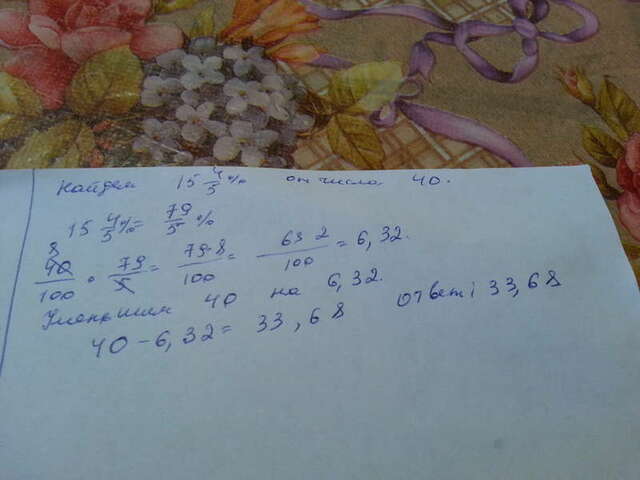 Найдем 15 4/5 % от числа 40.
15 4/5 % = 79/5 %
8
40/100 • 79/5 = 79·8/100 = 632/100 = 6,32.
Уменьшим 40 на 6,32.
40 - 6,32 = 33,68 Ответ: 33,68